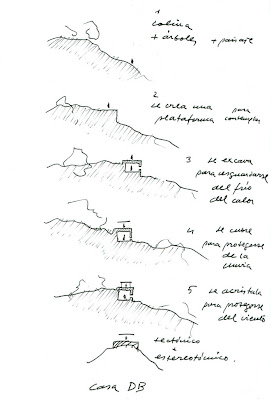 1
colina
+ árboles + paisaje
2
se crea una para
plataforma contemplar
3 se excava
para resguardarse
del frío
del calor
4 se cubre
para protegerse
de la
lluvia
5 se acristala
para protegerse
del viento
tectónico
estereotómico.
casa DB